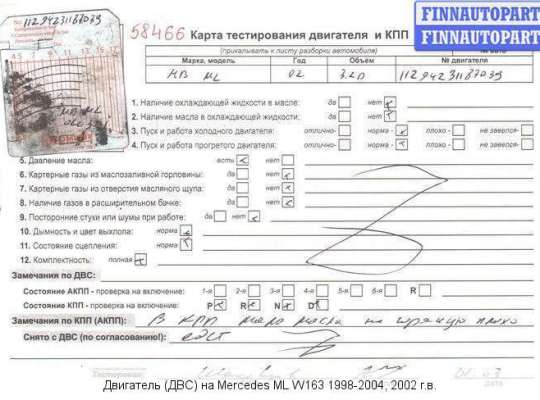 No 11294231187039
58466 Карта тестирования двигателя и КПП
FINNAUTOPART
FINNAUTOPART
(прикалывать к листу разборки автомобиля)
Марка, модель Год Объём № двигателя
МВ ML 02 3.2 11294231187039
1. Наличие охлаждающей жидкости в масле: да нет
2. Наличие масла в охлаждающей жидкости: да нет
3. Пуск и работа холодного двигателя: отлично- норма - плохо - не завелся-
4. Пуск и работа прогретого двигателя: отлично- норма - плохо - не завелся-
5. Давление масла: есть нет
6. Картерные газы из маслозаливной горловины: да нет
7. Картерные газы из отверстия масляного щупа: да нет
8. Наличие газов в расширительном бачке: да нет
9. Посторонние стуки или шумы при работе: да нет
10. Дымность и цвет выхлопа: норма
11. Состояние сцепления: норма
12. Комплектность: полная
Замечания по ДВС:
Состояние АКПП - проверка на включение: 1-я 2-я 3-я 4-я 5-я 6-я R
Состояние КПП - проверка на включение: P R N D
Замечания по КПП (АКПП): В КПП мало масла на горячую плохо
Снято с ДВС (по согласованию!):
Тестировал: 01.03
дата
Двигатель (ДВС) на Mercedes ML W163 1998-2004, 2002 г.в.